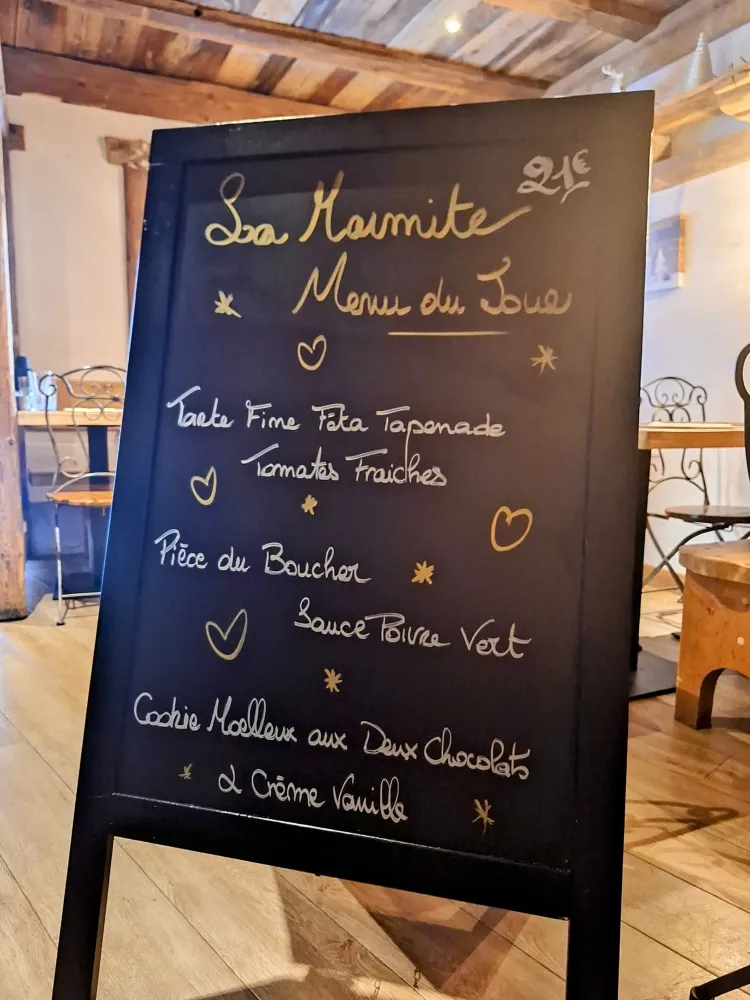 21€
La Marmite
Menu du Jour
Tarte Fine Fêta Tapenade
Tomates Fraiches
Pièce du Boucher
Sauce Poivre Vert
Cookie Moelleux aux Deux Chocolats
& Crème Vanille